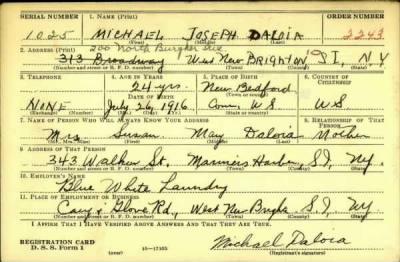 SERIAL NUMBER 1. NAME (Print) ORDER NUMBER
1025 MICHAEL JOSEPH DALOIA 2243
(First) (Middle) (Last)
2. ADDRESS (Print) 200 North Burgher Ave
313 Broadway West New BRIGHTON, SI, N.Y
(Number and street or R. F. D. number) (Town) (County) (State)
3. TELEPHONE 4. AGE IN YEARS 5. PLACE OF BIRTH 6. COUNTRY OF CITIZENSHIP
24 yrs. New Bedford
DATE OF BIRTH (Town or county)
NONE July 26, 1916 Conn, US US
(Exchange) (Number) (Mo.) (Day) (Yr.) (State or country)
7. NAME OF PERSON WHO WILL ALWAYS KNOW YOUR ADDRESS 8. RELATIONSHIP OF THAT PERSON
Mrs. Susan May Daloia Mother
(Mr., Mrs., Miss) (First) (Middle) (Last)
9. ADDRESS OF THAT PERSON
343 Walker St, Mariners Harbor, S.I, Ny.
(Number and street or R. F. D. number) (Town) (County) (State)
10. EMPLOYER'S NAME
Blue White Laundry
11. PLACE OF EMPLOYMENT OR BUSINESS
Glove Rd, West New S.I, NY
(Number and street or R. F. D. number) (Town) (County) (State)
I AFFIRM THAT I HAVE VERIFIED ABOVE ANSWERS AND THAT THEY ARE TRUE.
REGISTRATION CARD
D. S. S. Form 1 16—17105 Michael Daloia
(Registrant's signature)